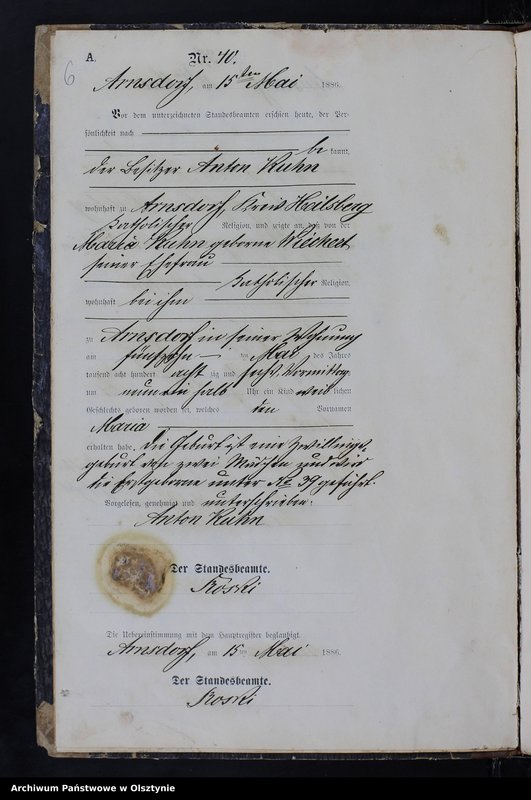 6
A.
Nr. 40.
Arnsdorf, am 15ten Mai 1886.
Vor dem unterzeichneten Standesbeamten erschien heute, der Per-
sönlichkeit nach
be kannt,
der Besitzer Anton Kuhn
wohnhaft zu Arnsdorf, Kreis Heilsberg
katholischer Religion, und zeigte an, daß von der
Maria Kuhn geborne
seiner Ehefrau
katholischer Religion,
wohnhaft bei ihm
zu Arnsdorf in seiner Wohnung
am fünfzehn ten Mai des Jahres
tausend acht hundert acht zig und sechs Vormittag
um neunein halb Uhr ein Kind weib lichen
Geschlechts geboren worden sei, welches den Vornamen
Maria
erhalten habe. Die Geburt ist eine Zwillings-
geburt von zwei Mädchen und wird
die Erstgeborne unter No 39 geführt.
Vorgelesen, genehmigt und unterschrieben:
Anton Kuhn
Der Standesbeamte.
Roski
Die Uebereinstimmung mit dem Hauptregister beglaubigt
Arnsdorf, am 15ten Mai 1886.
Der Standesbeamte.
Roski
Archiwum Państwowe w Olsztynie